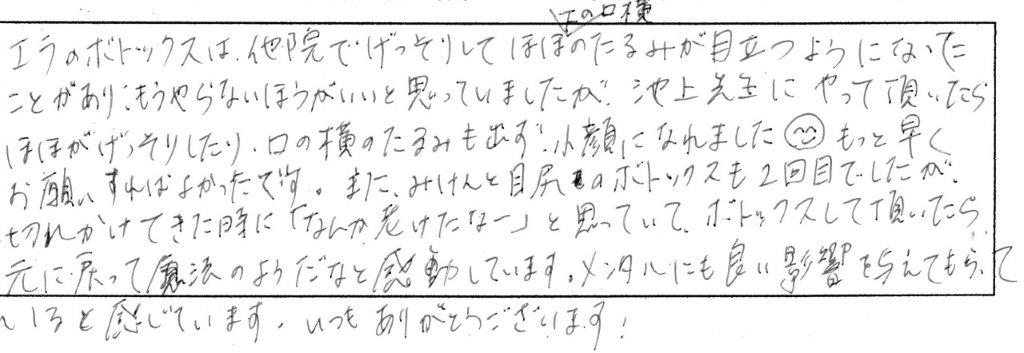 下の口横
エラのボトックスは、他院でげっそりしてほほのたるみが目立つようになった
ことがあり、もうやらないほうがいいと思っていましたが、池上先生にやって頂いたら
ほほがげっそりしたり、口の横のたるみも出ず、小顔になれました😊もっと早く
お願いすればよかったです。また、みけんと目尻のボトックスも2回目でしたが、
切れかけてきた時に「なんか老けたなー」と思っていて、ボトックスして頂いたら
元に戻って魔法のようだなと感動しています。メンタルにも良い影響を与えてもらって
いると感じています。いつもありがとうございます!